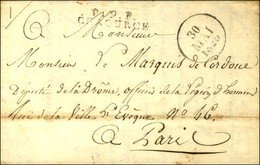 P. P. P.
A Monsieur
30
MAI
1826
Monsieur le Marquis de Cordoue
Député de la Drôme, officier de la Légion d'honneur
Rue de la Ville l'Evêque N° 46.
A Paris